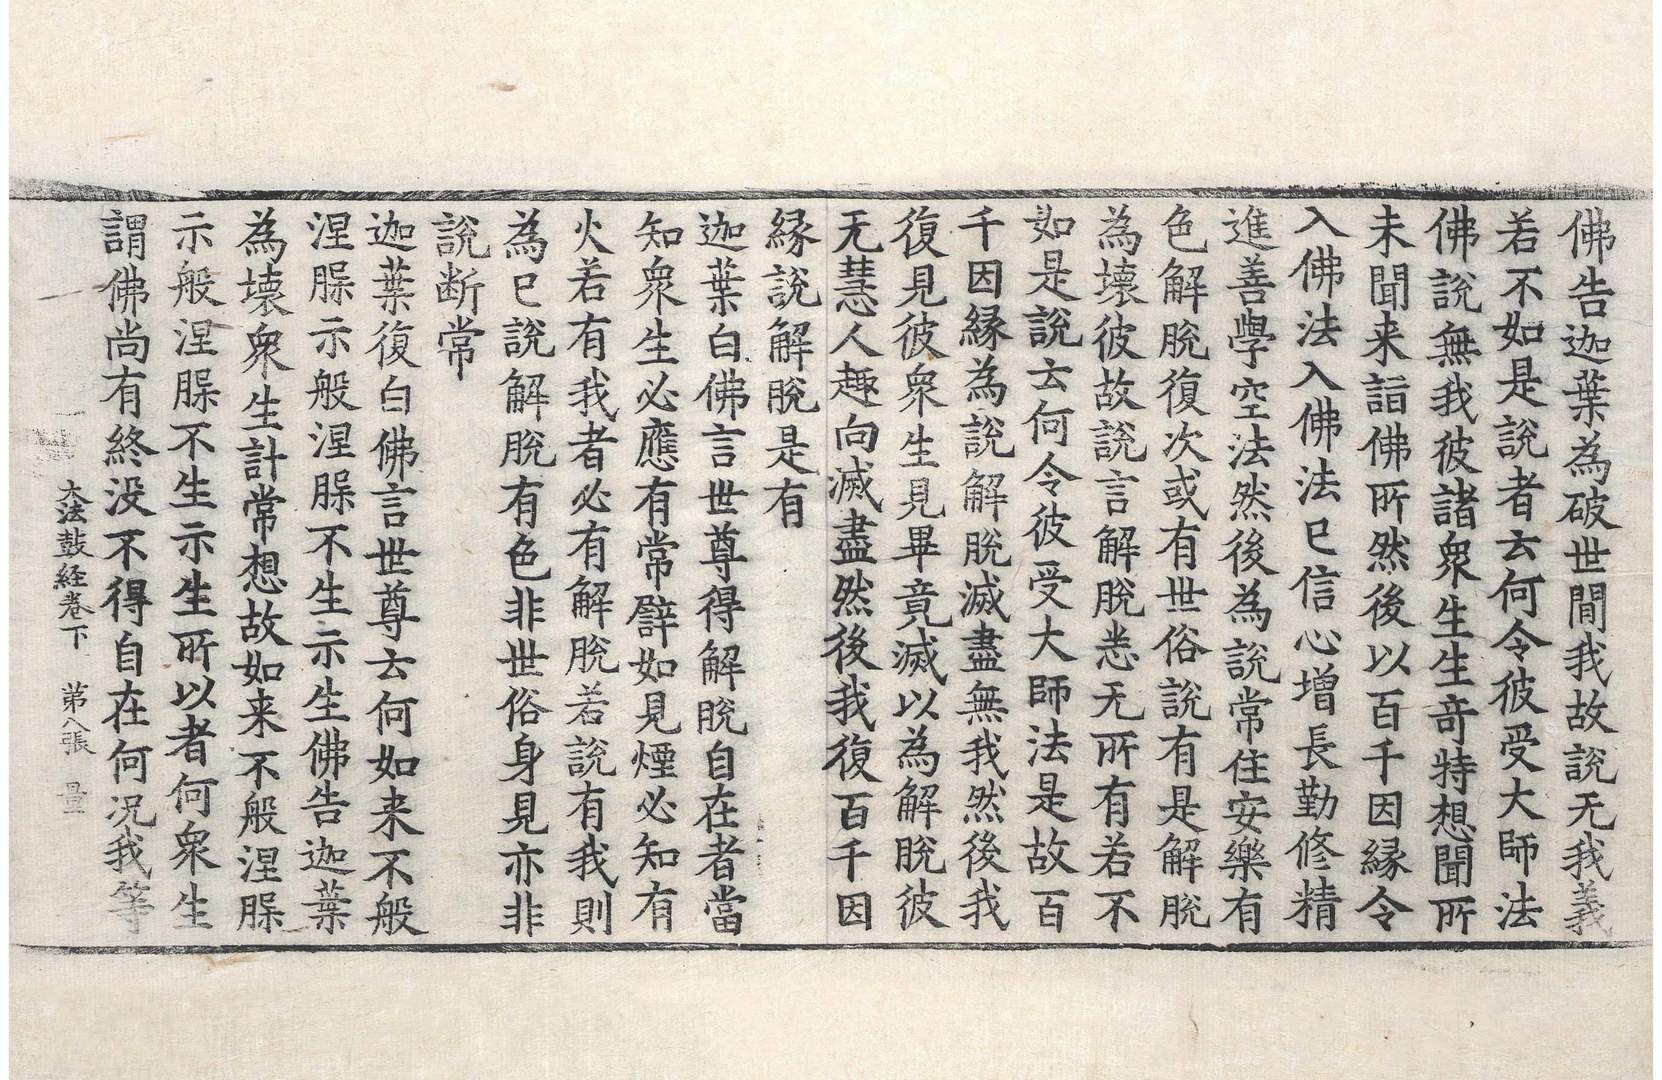 佛告迦葉為破世間我故說无我義
若不如是說者云何令彼受大師法
佛說無我彼諸衆生生竒特想聞所
未聞来詣佛所然後以百千因緣令
入佛法入佛法已信心增長勤修精
進善學空法然後為說常住安樂有
色解脫復次或有世俗說有是解脫
為壞彼故說言解脫悉无所有若不
如是說云何令彼受大師法是故百
千因緣為說解脫滅盡無我然後我
復見彼衆生見畢竟滅以為解脫彼
无慧人趣向滅盡然後我復百千因
緣說解脫是有
迦葉白佛言世尊得解脫自在者當
知衆生必應有常譬如見煙必知有
火若有我者必有解脫若說有我則
為已說解脫有色非世俗身見亦非
說断常
迦葉復白佛言世尊云何如来不般
涅槃示般涅槃不生示生佛告迦葉
為壞衆生計常想故如来不般涅槃
示般涅槃不生示生所以者何衆生
謂佛尚有終没不得自在何况我等
大法鼓経卷下 第八張 量